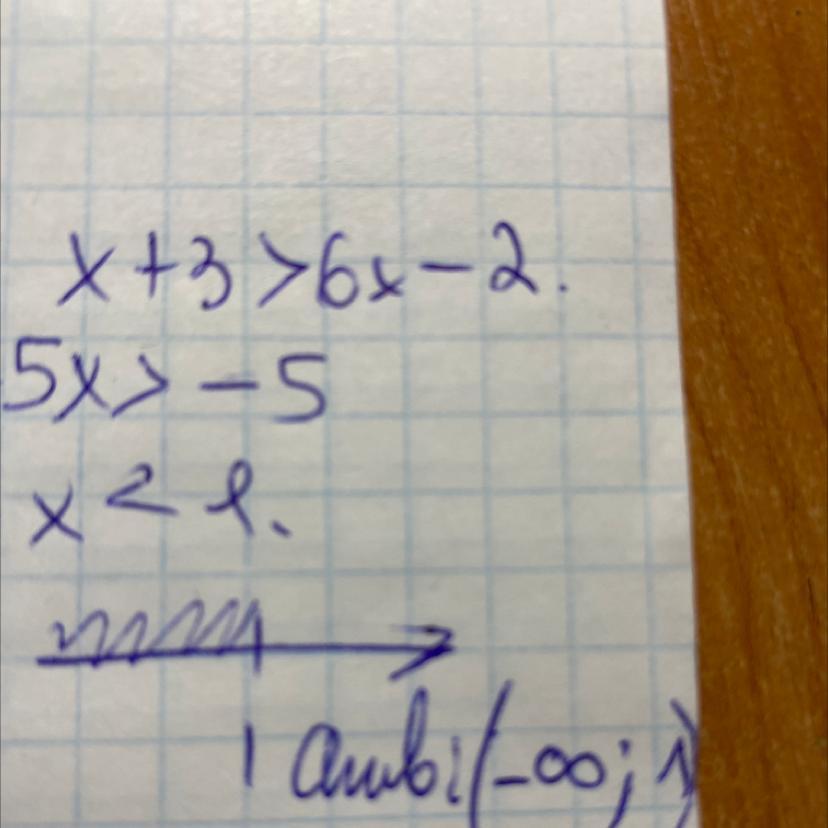 x+3>6x-2.
5x>-5
x<1.
1 Answ: (-∞; 1)